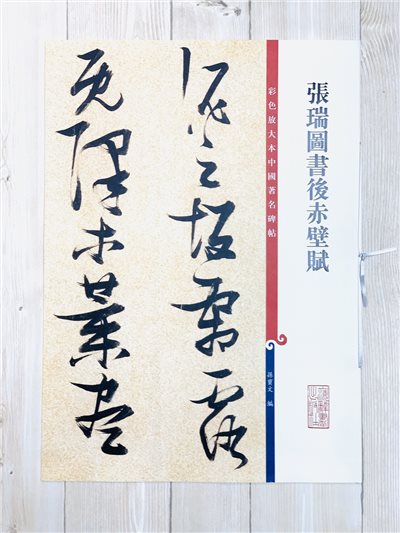 張瑞圖書後赤壁賦
彩色放大本中國著名碑帖
孫寶文 編
泥之坂霜露
既降木葉盡